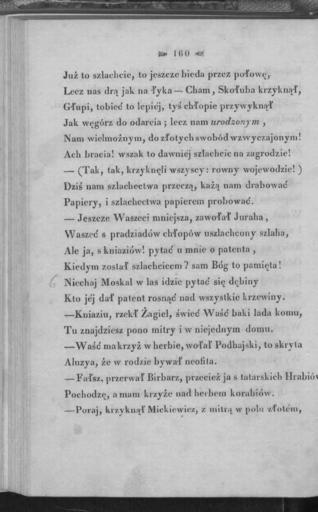 160
Już to szlachcic, to jeszcze bieda przez połowę,
Lecz nas drą jak na łyka — Cham, Skołuba krzyknął,
Głupi, tobieć to lepiéj, tyś chłopie przywyknął
Jak węgórz do odarcia; lecz nam urodzonym,
Nam wielmożnym, do złotych swobód wzwyczajonym!
Ach bracia! wszak to dawniéj szlachcic na zagrodzie!
— (Tak, tak, krzyknęli wszyscy: rowny wojewodzie!)
Dziś nam szlachectwa przeczą, każą nam drabować
Papiery, i szlachectwa papierem probować.
— Jeszcze Waszeci mniejsza, zawołał Juraha,
Waszeć s pradziadów chłopów uszlachcony szlaha,
Ale ja, s kniaziów! pytać u mnie o patenta,
Kiedym został szlachcicem? sam Bóg to pamięta!
Niechaj Moskal w las idzie pytać się dębiny
Kto jéj dał patent rosnąć nad wszystkie krzewiny.
— Kniaziu, rzekł Żagiel, świeć Waść baki lada komu,
Tu znajdziesz pono mitry i w niejednym domu.
— Waść ma krzyż w herbie, wołał Podhajski, to skryta
Aluzya, że w rodzie bywał neofita.
— Fałsz, przerwał Birbarz, przecież ja s tatarskich Hrabiów
Pochodzę, a mam krzyże nad herbem korabiów.
— Poraj, krzyknął Mickiewicz, z mitrą w polu złotém,